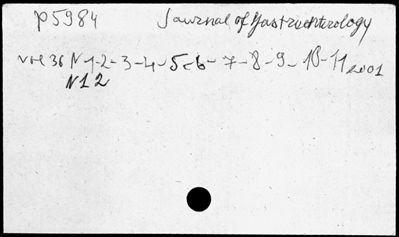 p5984 Journal of Gastroenterology
vol 36 N 1-2-3-4-5-6-7-8-9-10-11 2001
N12